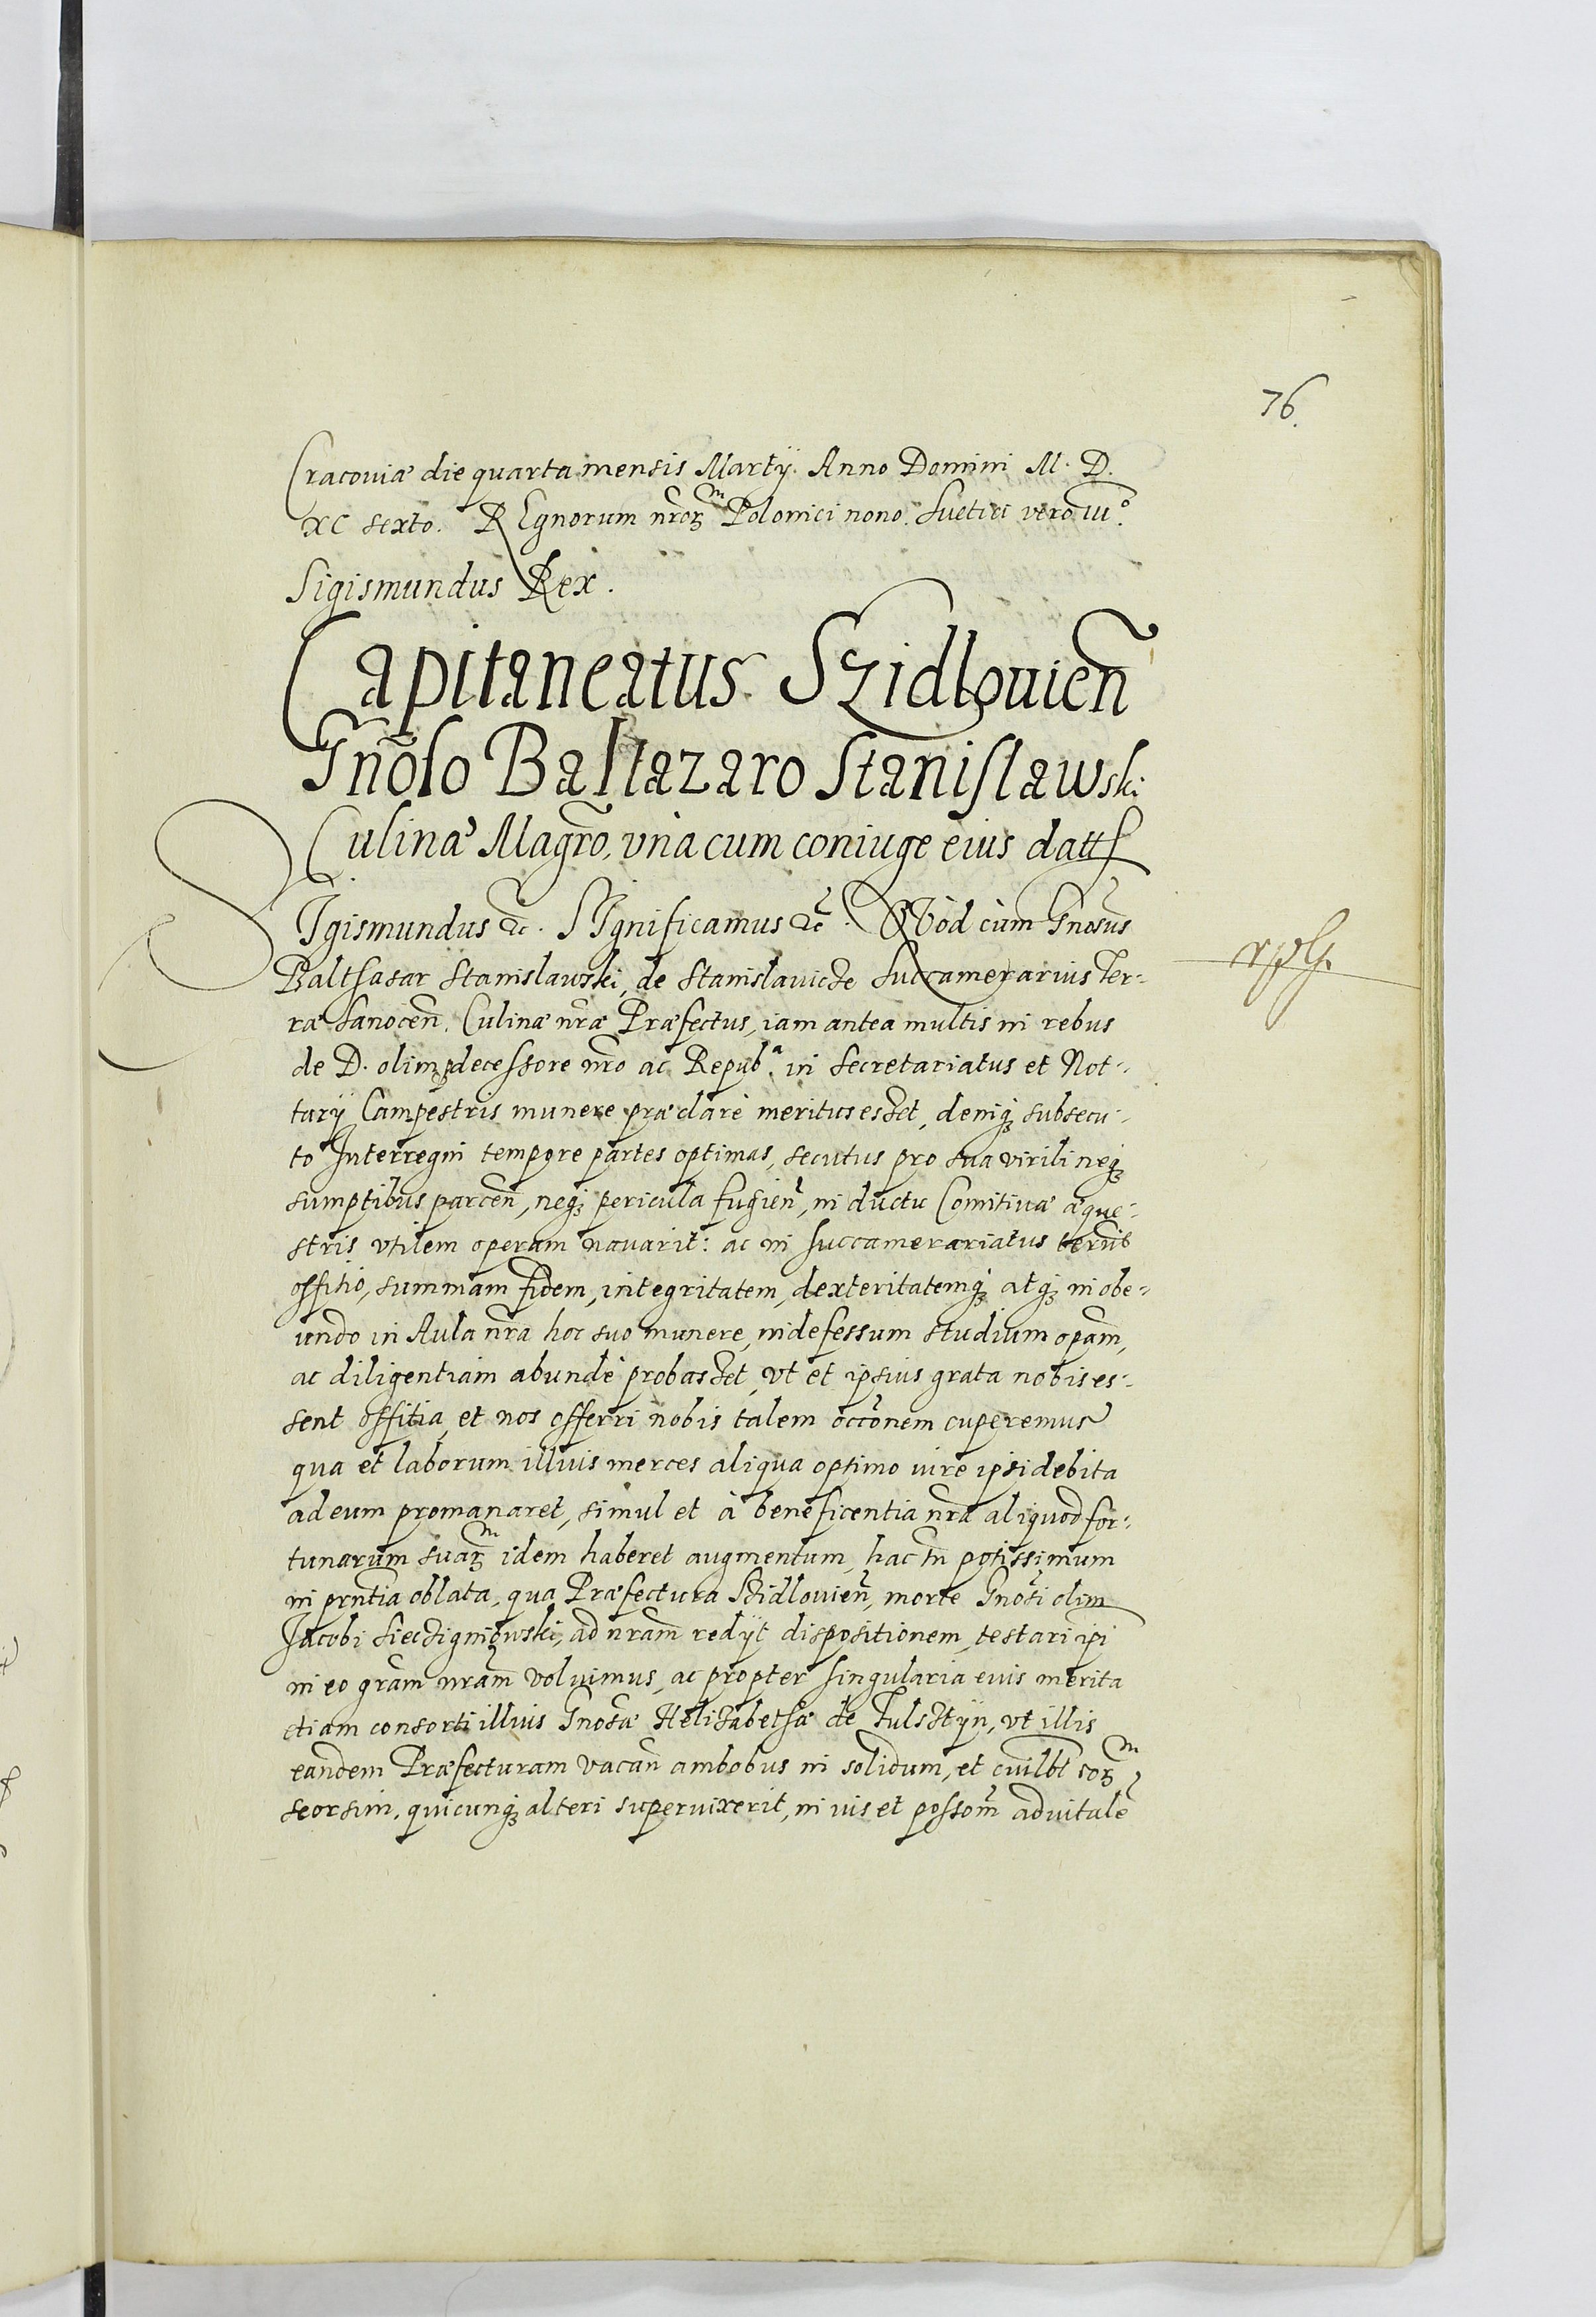 76.
Cracouiæ die quarta mensis Martÿ. Anno Domini M. D.
XC sexto. REgnorum nr̃orꝫ m Polonici nono. Suetici vero iii°.
Sigismundus Rex.
Capitaneatus Szidlouien̄
Gn̄oso Baltazaro Stanislawski
Culinæ Magr̃o, vna cum coniuge eius datt
SIgismundus &c. SIgnificamus &c. QVòd cùm Gnosus
Balthasar Stanislawski, de Stanislavicze Succamerarius Ter-
ræ Sanocen̄. Culinæ nr̃æ Præfectus, iam antea multis in rebus
de D. olim p̱decessore nr̃o ac Repub.ª in Secretariatus et Not-
tarÿ Campestris munere præclarè meritus esset, deniqꝫ subsecu-
to Interregni tempore partes optimas, secutus pro sua virili neqꝫ
sumptibus parcen̄, neqꝫ pericula fugien̄, in ductu Comitiuæ æque-
stris vtilem operam nauarit: ac in Succamerariatus
offitio, summam fidem, integritatem, dexteritatemqꝫ atqꝫ in obe-
undo in Aula nr̃a hoc suo munere, indefessum studium opam̄,
ac diligentiam abundè probasset, vt et ipsius grata nobis es-
sent offitia, et nos offerri nobis talem occōnem cuperemus
qua et laborum illius merces aliqua optimo iure ipsi debita
ad eum promanaret, simul et à beneficentia nr̃a aliquod for-
tunarum suarꝫ m idem haberet augmentum, hac tn̄ potissimum
in prn̄tia oblata, qua Præfectura Szidlouien̄, morte Gnosi olim
Jacobi Sieczigniowski, ad nram̄ redÿt dispositionem, testari ipi
in eo gram̄ nram̄ voluimus, ac propter singularia eius merita
etiam consorti illius Gnosæ Helizabethæ de Fulsztÿn, vt illis
eandem Præfecturam vacan̄ ambobus in solidum, et cuilbt eorꝫ m
seorsim, quicunqꝫ alteri superuixerit, in vis et possom̄ aduitalē